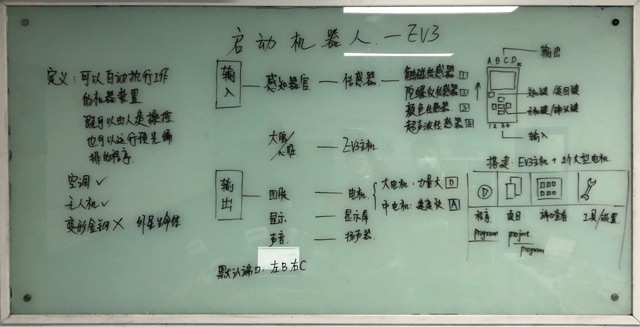 启动机器人—EV3
定义：可以自动执行工作
的机器装置
既可以由人类操控
也可以运行预先编
排的程序
空调 ✓
无人机 ✓
变形金钢 ✗ 外星生命体
输入
感知器官 — 传感器
触碰传感器 1
陀螺仪传感器 2
颜色传感器 3
超声波传感器 4
大脑
心脏
EV3主机
输出
四肢 — 电机
大电机：力量大 D
中电机：速度快 A
显示 — 显示屏
声音 — 扬声器
默认端口：左B右C
输出
A B C D
输入
搭建 EV3主机 + 2个大型电机
程序
项目
端口查看
工具/设置
program
project
program